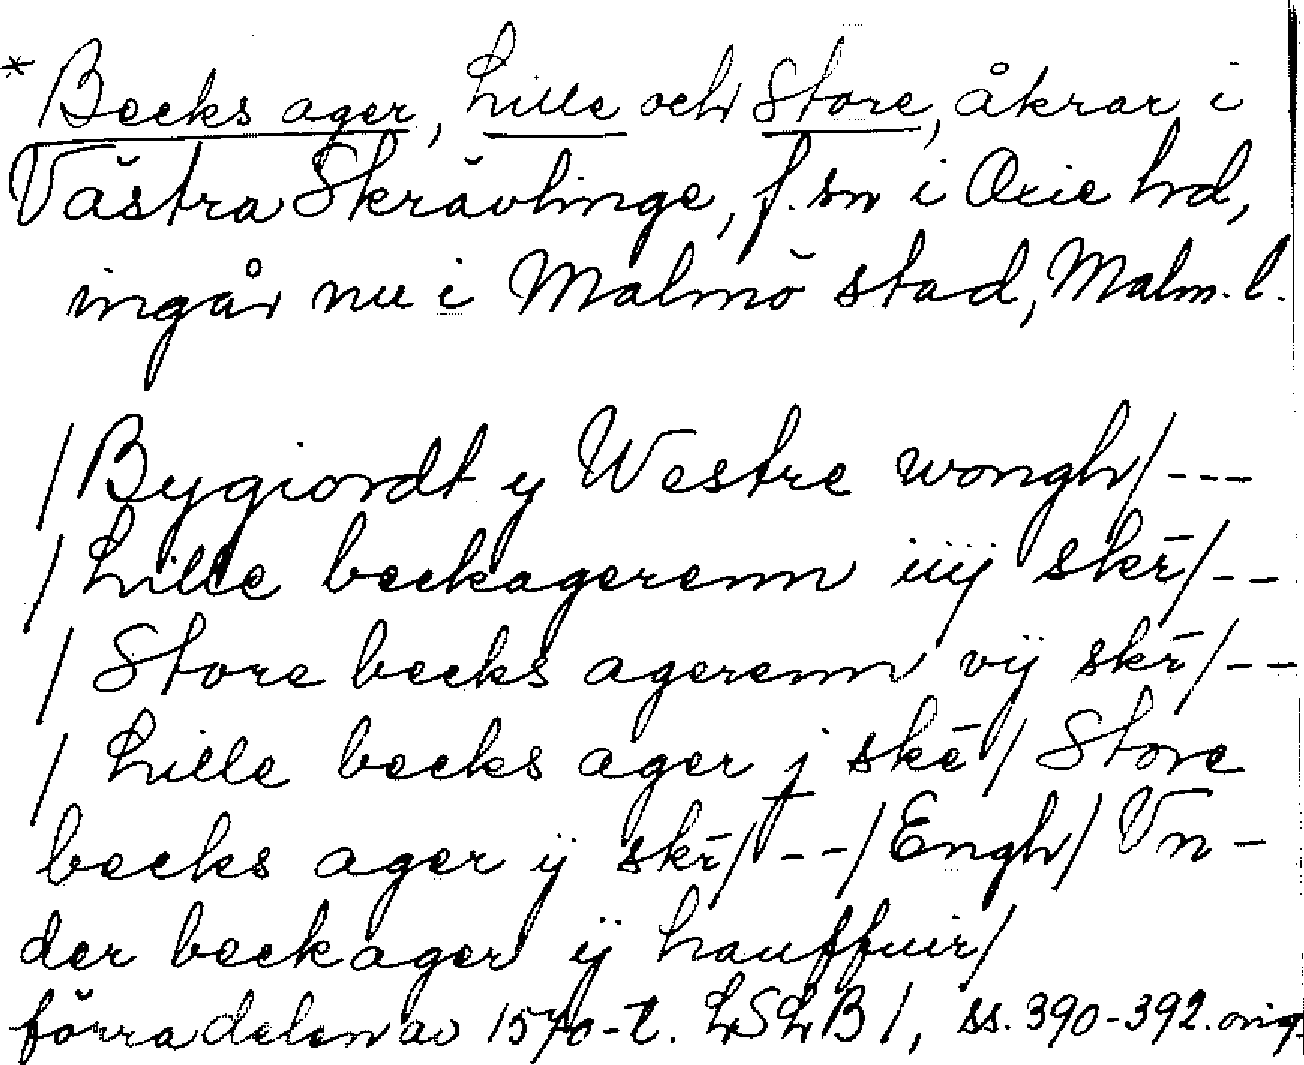 * Becks ager, Lille och Store, åkrar i
Västra Skrävlinge, f. sn i Oxie hd,
ingår nu i Malmö stad, Malm. l.
/Bygiordt y Westre wongh/---
/Lille beckagerenn iiij skr̄/--
/Store becks agerenn vij skr̄/--
/Lille becks ager j skē/Store
becks ager ij skr̄/--/Engh/Vn-
der beckager ij hauffuir/
förra delen av 1570-t. LSLB 1, ss. 390-392. orig.